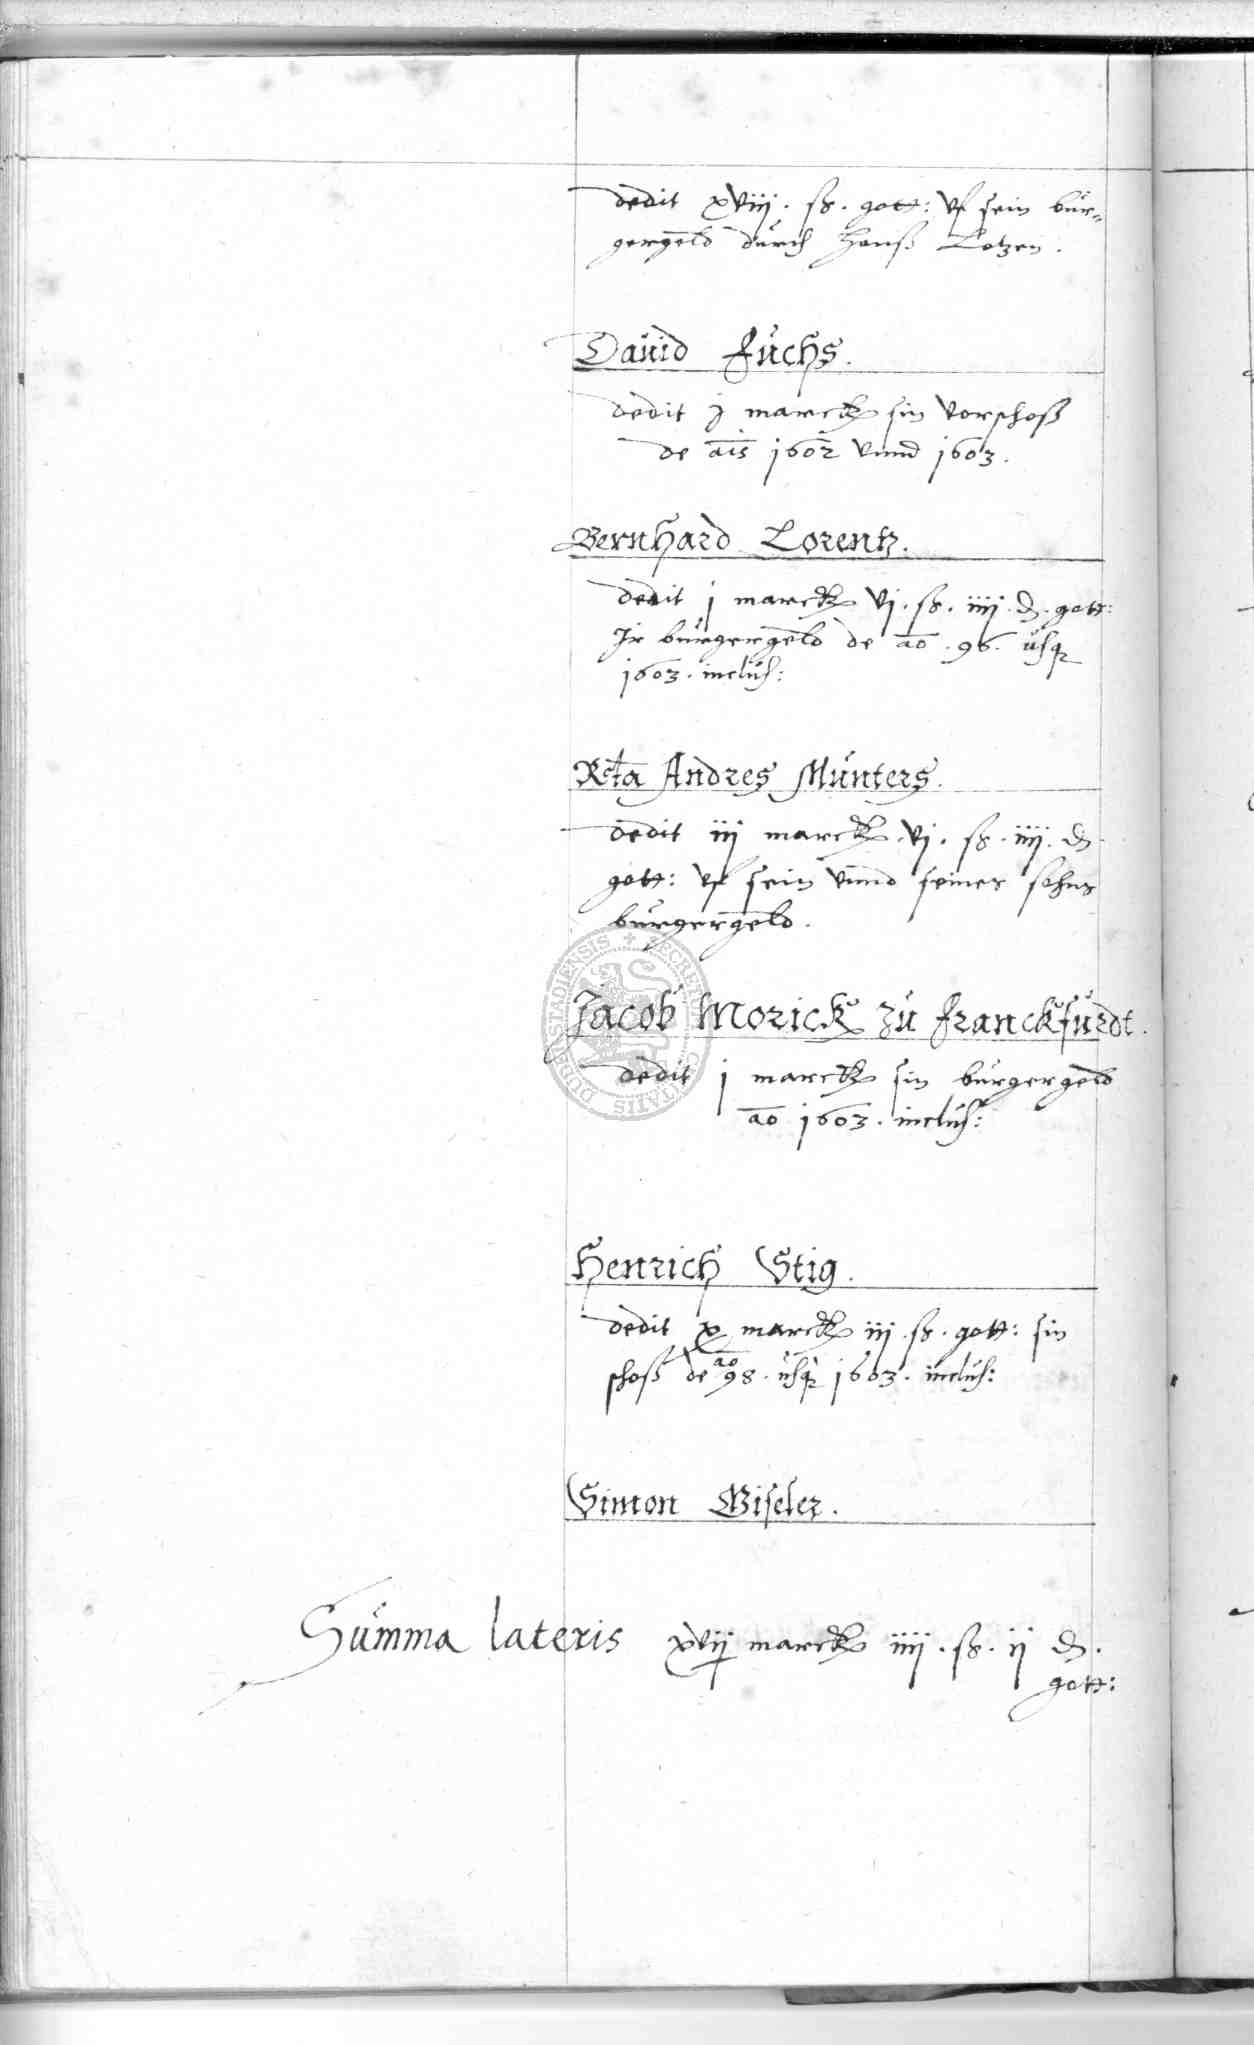 dedit xviij. ß. gott: vf sein bur-
gergeld durch Hanß Lotzen.
David Fuchs.
dedit j marck sin vorschoß
de ais 1602 vnnd 1603.
Bernhard Lorentz.
dedit j marck vj. ß. iiij. d. gott:
Ir burgergeld de ao. 96. usq
1603. inclus:
Rcta Andres Munters.
dedit iij marck vj. ß. iiij. d
gott: vf sein vnnd seines sohns
burgergeld.
Jacob Morick zu Franckfurdt.
dedit j marck sin burgergeld
ao 1603. inclus:
Henrich Stig.
dedit x marck iij. ß. gott: sin
schoß de ao 98. usq 1603. inclus:
Simon Giseler.
Summa lateris xvij marck iiij. ß. ij d.
gott:
DUDERSTADIENSIS SECRETUM CIVITATIS